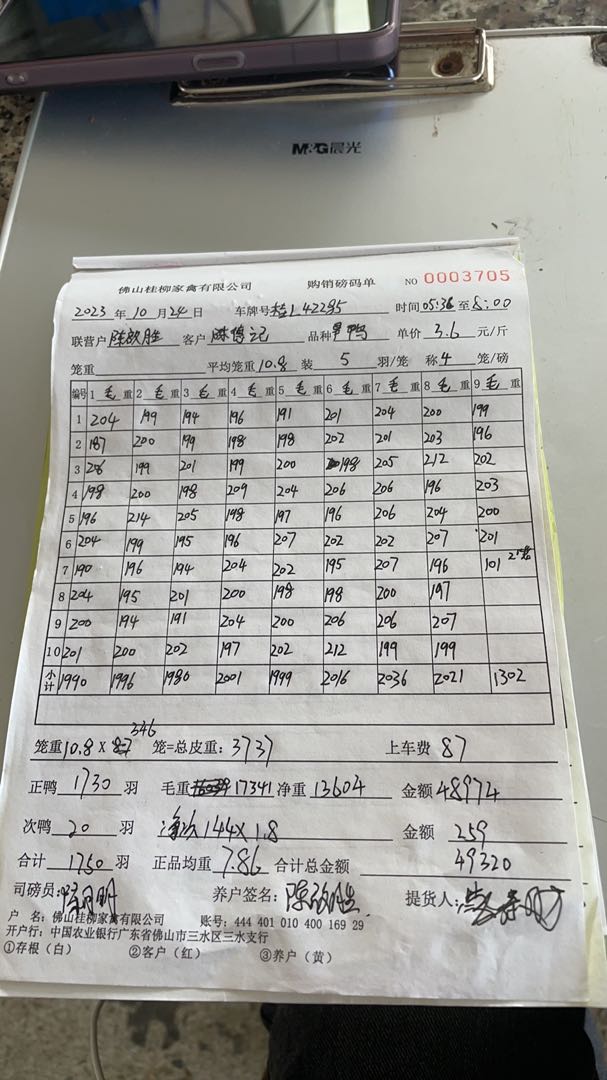 M&G晨光
佛山桂柳家禽有限公司 购销磅码单 NO 0003705
2023 年 10 月 24 日 车牌号 桂L42295 时间 05:36 至 8:00
联营户 陈欧胜 客户 陈传记 品种 单价 3.6 元/斤
笼重 平均笼重 10.8 装 5 羽/笼 称 4 笼/磅
编号 1 毛 重 2 毛 重 3 毛 重 4 毛 重 5 毛 重 6 毛 重 7 毛 重 8 毛 重 9 毛 重
1 204 199 194 196 191 201 204 200 199
2 187 200 199 198 198 202 201 203 196
3 206 199 201 199 200 198 205 212 202
4 198 200 198 209 204 206 206 196 203
5 196 214 205 198 197 196 206 204 200
6 204 199 195 196 207 202 202 207 201
7 190 196 194 204 202 195 207 196 101 2笼
8 204 195 201 200 198 198 200 197
9 200 194 191 204 200 206 206 207
10 201 200 202 197 202 212 199 199
小计 1990 1996 1980 2001 1999 2016 2036 2021 1302
346
笼重 10.8 X 笼=总皮重: 3737 上车费 87
正鸭 1730 羽 毛重 17341 净重 13604 金额 48974
次鸭 20 羽 净次144×1.8 金额 259
合计 1750 羽 正品均重 7.86 合计总金额 49320
司磅员: 养户签名: 陈欧胜 提货人:
户 名: 佛山桂柳家禽有限公司 账号: 444 401 010 400 169 29
开户行: 中国农业银行广东省佛山市三水区三水支行
①存根（白） ②客户（红） ③养户（黄）